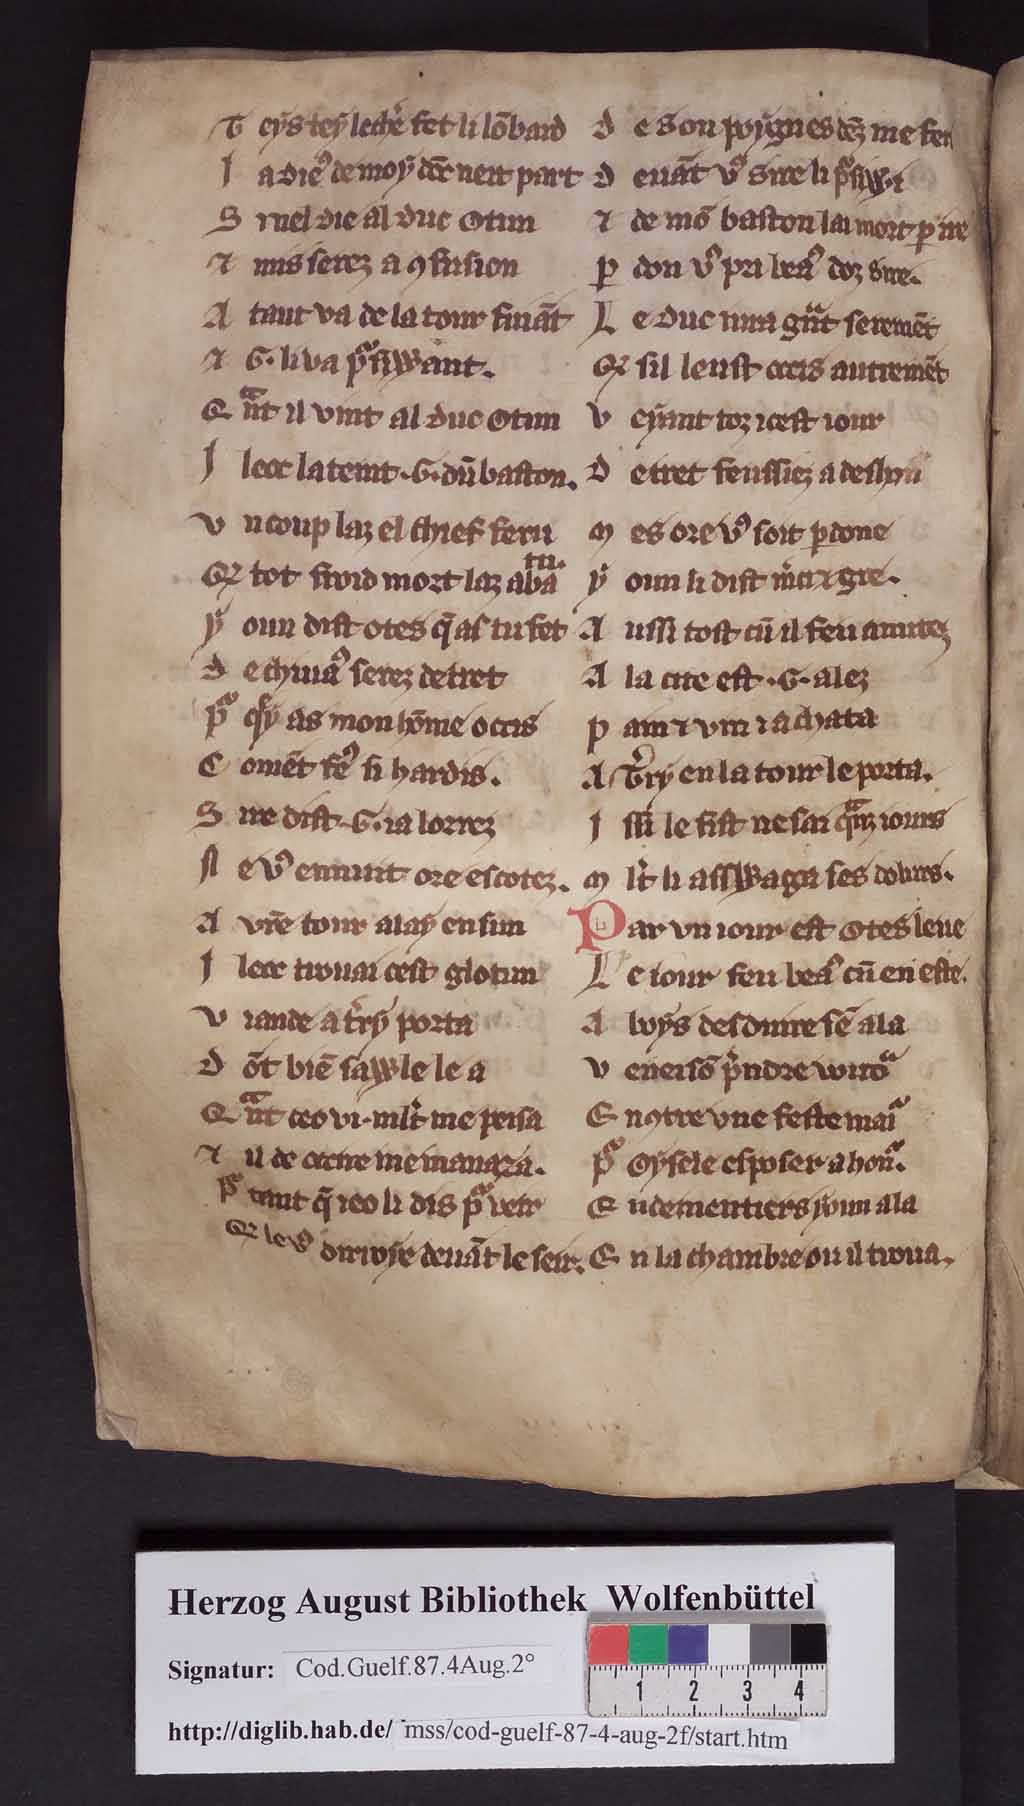 T eys tey leche᷑ fet li lōbard
J a die᷒ de moy dēc neit part
S ruel die al duc Otun
⁊ mis serez a ꝯfusion
A taut va de la tour fuiāt
⁊ G. li va pᷣsiwant.
Q ᷓnt il vint al duc Otun
J lecc lateint .G. dū baston.
V n coup laz el chief feru
Q tot froid mort laz abatu.
Y oun dist Otes q̄ as tu fet
D e chiua᷒ serez detret
P᷑ qy as mon hōme occis
C omēt fe᷒ si hardis.
S ire dist .G. ia lorrez
N e v᷒ ennuit ore escotez.
A vr̄e tour alay en sun
J lecc trouai cest glotun
V iande a t᷑ry porta
D ōt biē sawle le a
Q ᷓnt ceo vi mlt᷑ me peisa
⁊ il de occire me manaza.
P᷑ tant q̄ ieo li dis p᷑ veir
Q le v᷒ dirroye deuāt le seir.
D e son poygn es dēz me feri
D euāt v᷒ sire li p᷑siwi
⁊ de mō baston lai mort p ire
P don v᷒ pri bea᷒ doz sire.
L e Duc iura gᷓnt seremēt
Q sil leust occis autremēt
V eyant toz icest iour
D etret feussiez a deshon
M es ore v᷒ soit pdone
Y oun li dist m᷑ci ⁊ gre.
A ussi tost cū il feu anuitez
A la cite est .G. alez
P ain ⁊ vin i achata
A T᷑ry en la tour le porta.
J ssi le fist ne sai qᷓnz iours
M lt᷑ li asswaga ses dolurs.
Par vn iour est Otes leue
L e iour feu bea᷒ cū en este.
A boys desduire sē ala
V eneisō p᷑ndre
E ncontre vne feste mai᷑
P᷑ Oysele esposer a hon᷑.
E ndementiers youn ala
E n la chambre ou il troua.
Herzog August Bibliothek Wolfenbüttel
Signatur: Cod.Guelf.87.4Aug.2°
1 2 3 4
http://diglib.hab.de/ mss/cod-guelf-87-4-aug-2f/start.htm